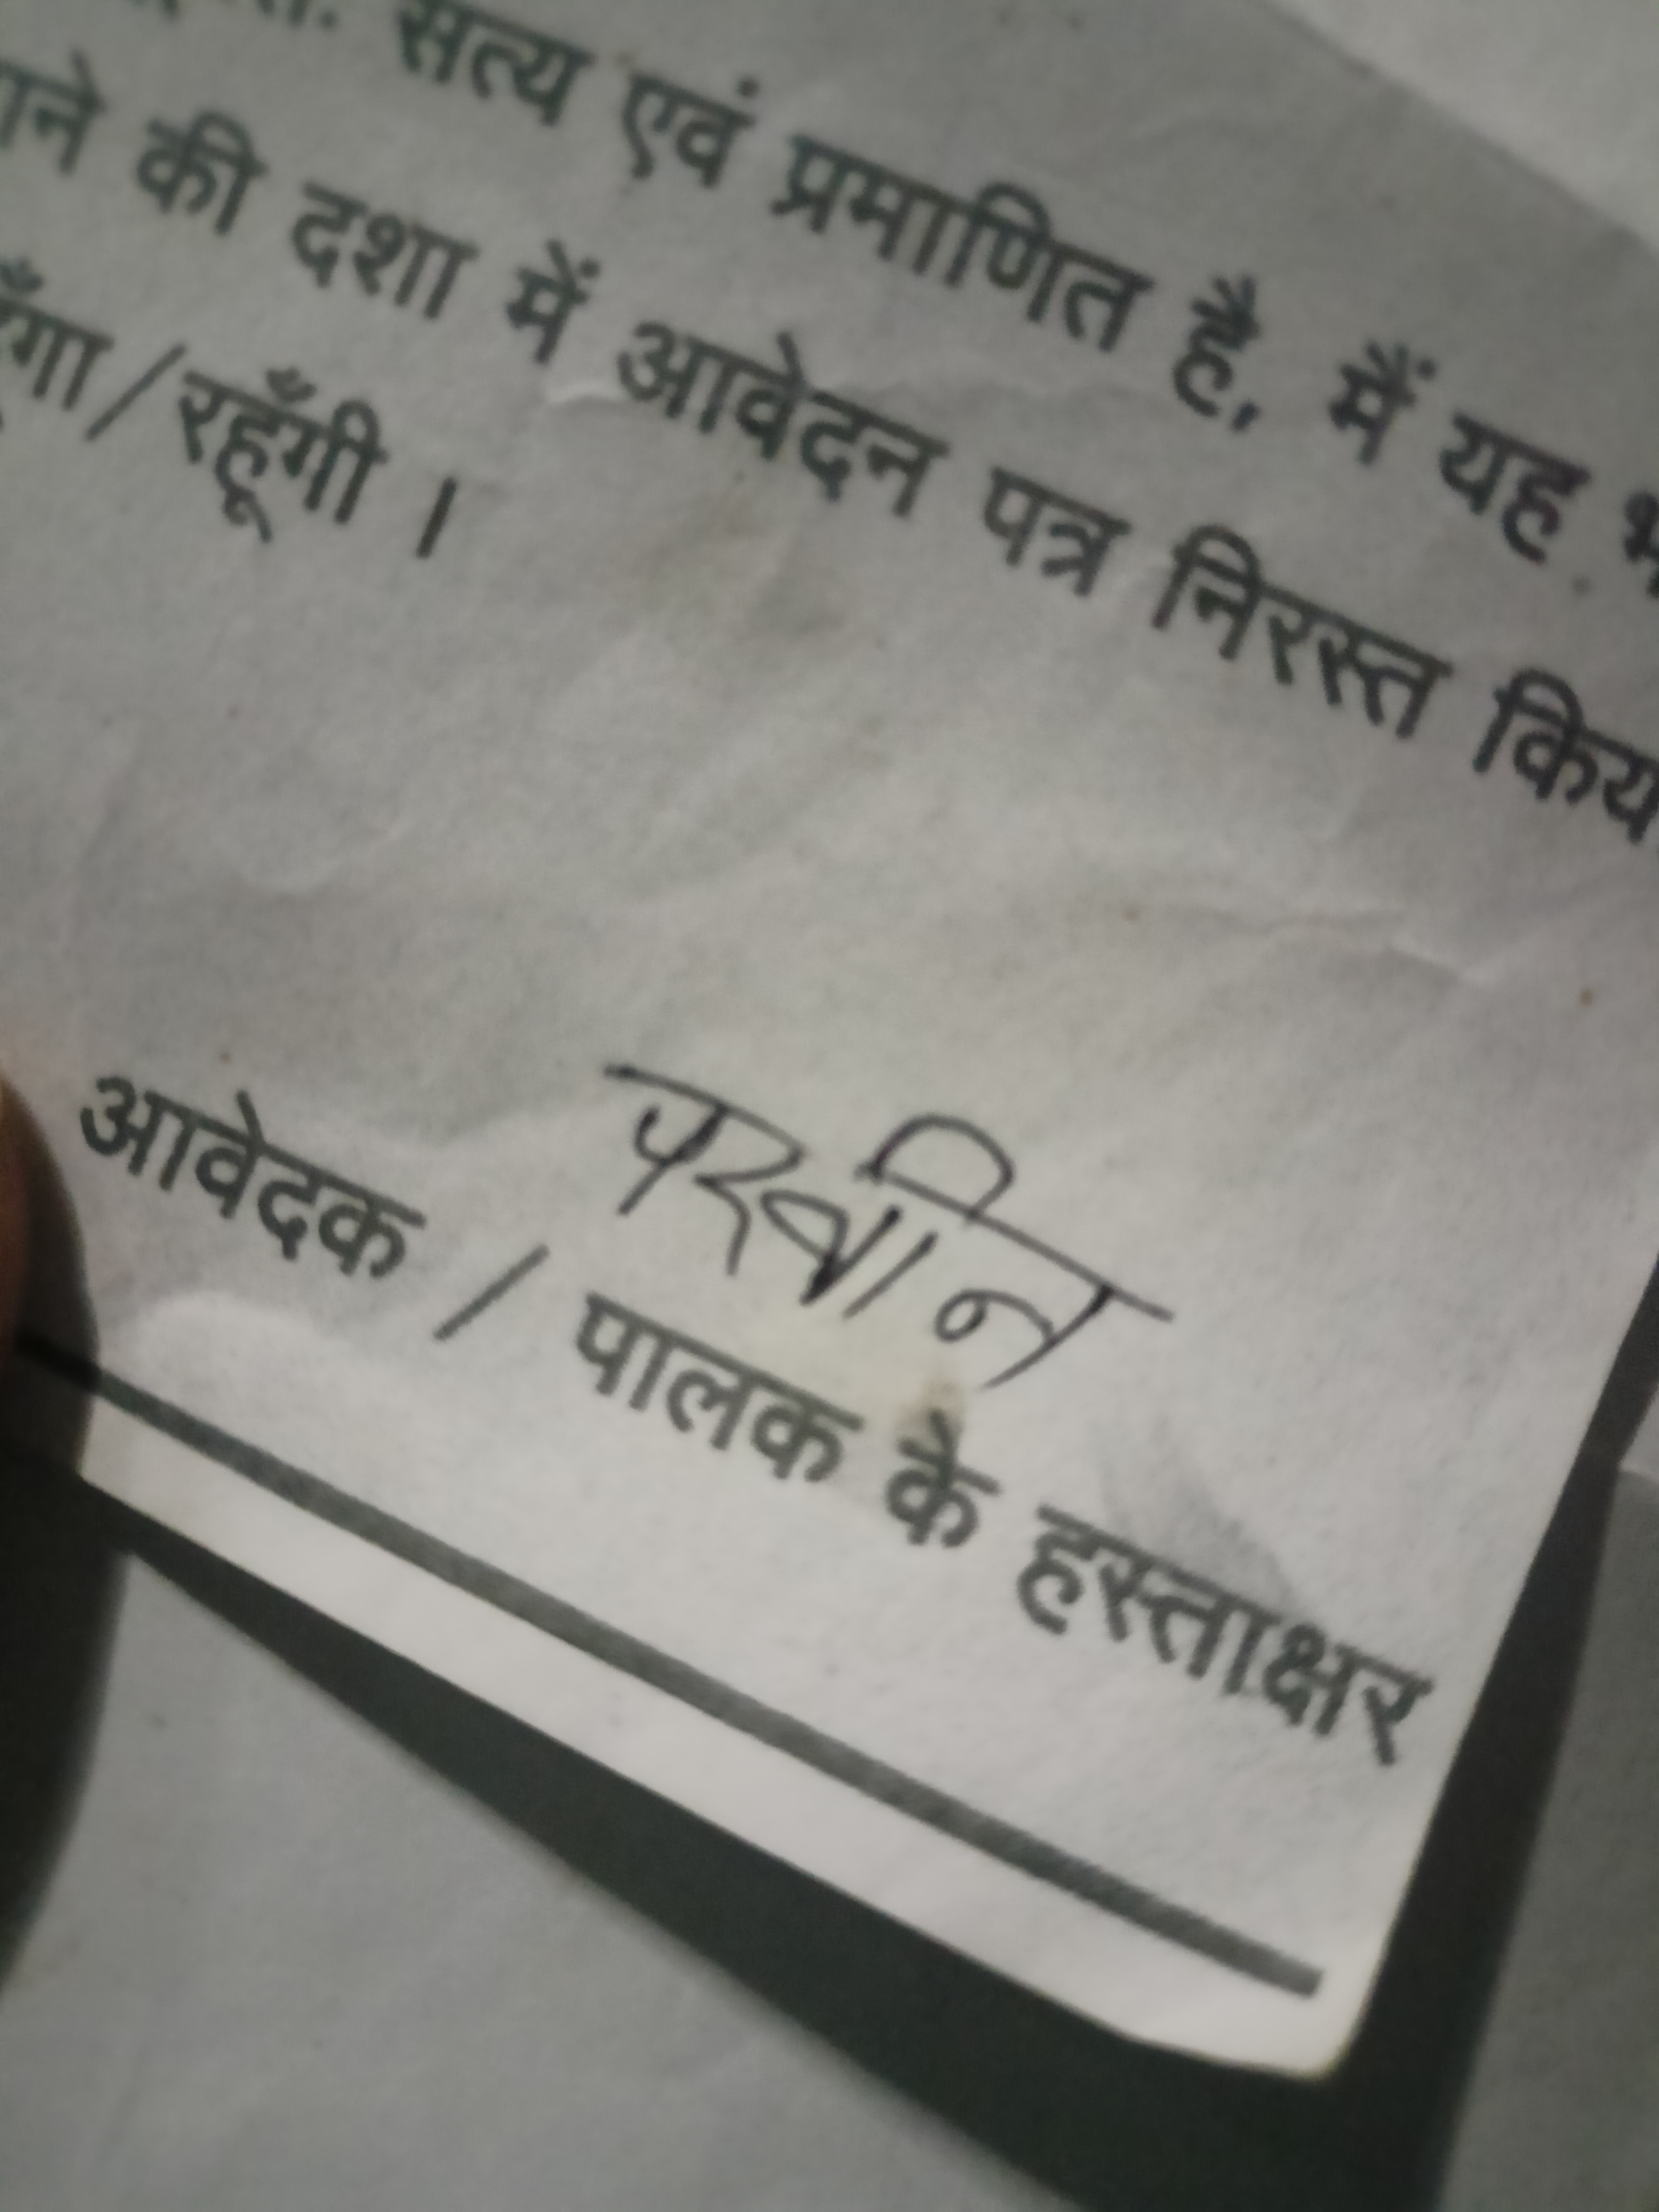 सत्य एवं प्रमाणित है, मैं यह
की दशा में आवेदन पत्र निरस्त
रहूँगी ।
परवीन
आवेदक / पालक के हस्ताक्षर